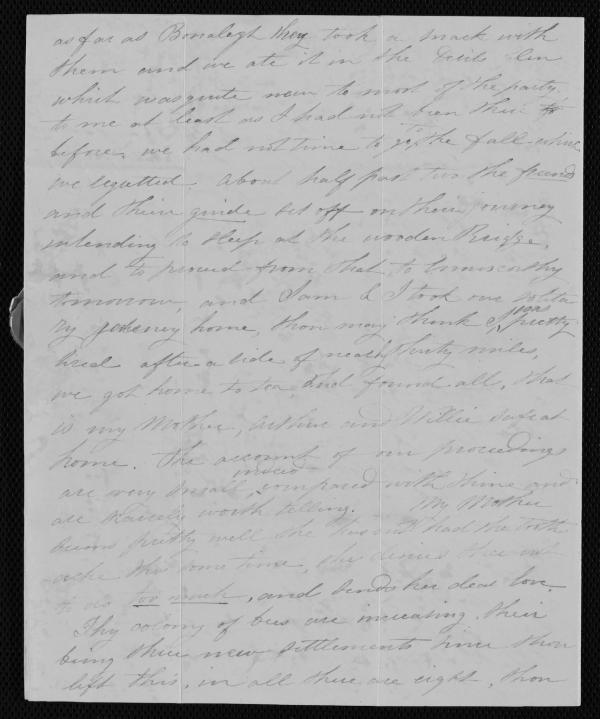 as far as Bonalegh they took a snack with
them and we ate it in the Devils Glen
which was quite new to most of the party
to me at least as I had not been there
before, we had not time to go to the fall which
we regretted. About half past two the friends
and their guide set off on their journey
intending to sleep at the wooden Bridge,
and to proceed from that to Enniscorthy
tomorrow, and Sam & I took our solita
ry journey home, thou may think I was pretty
tired after a ride of nearly thirty miles,
we got home to tea, and found all, that
is my Mother, Arthur and Willie safe at
home. The account of our proceedings
are very small indeed compared with thine and
are scarcely worth telling. My Mother
seems pretty well she has not had the tooth
ache this some time, she desires thee not
to do too much, and sends her dear love.
Thy colony of bees are increasing, their
being three new settlements since thou
left this, in all there are eight, thou